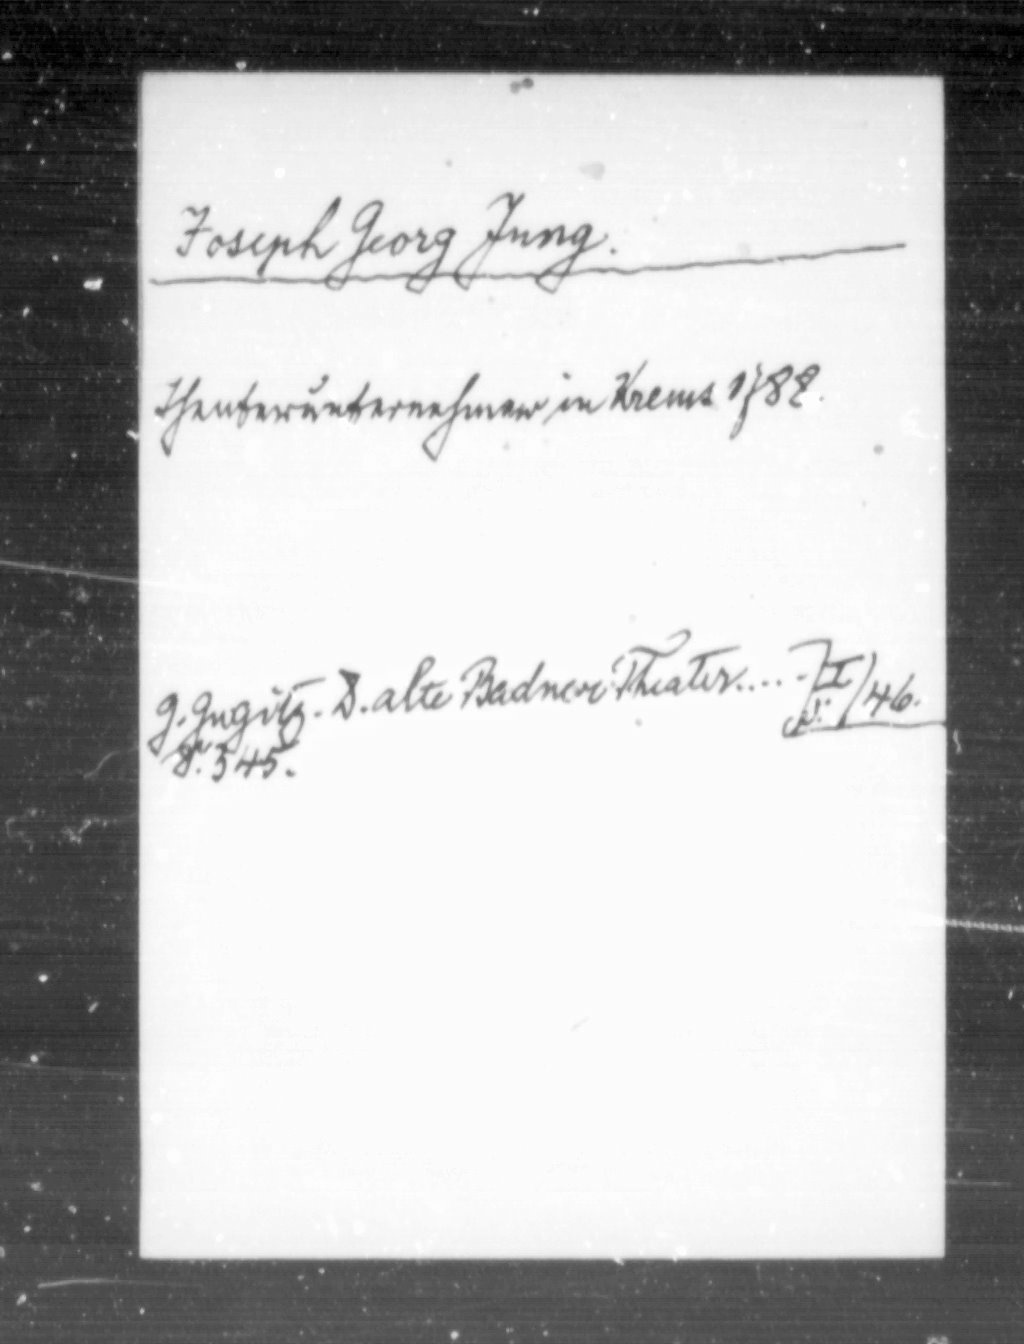 Joseph Georg Jung.
Theaterunternehmer in Krems 1788.
G. Gugitz. D. alte Badner Theater.... II/46.
S. 545.